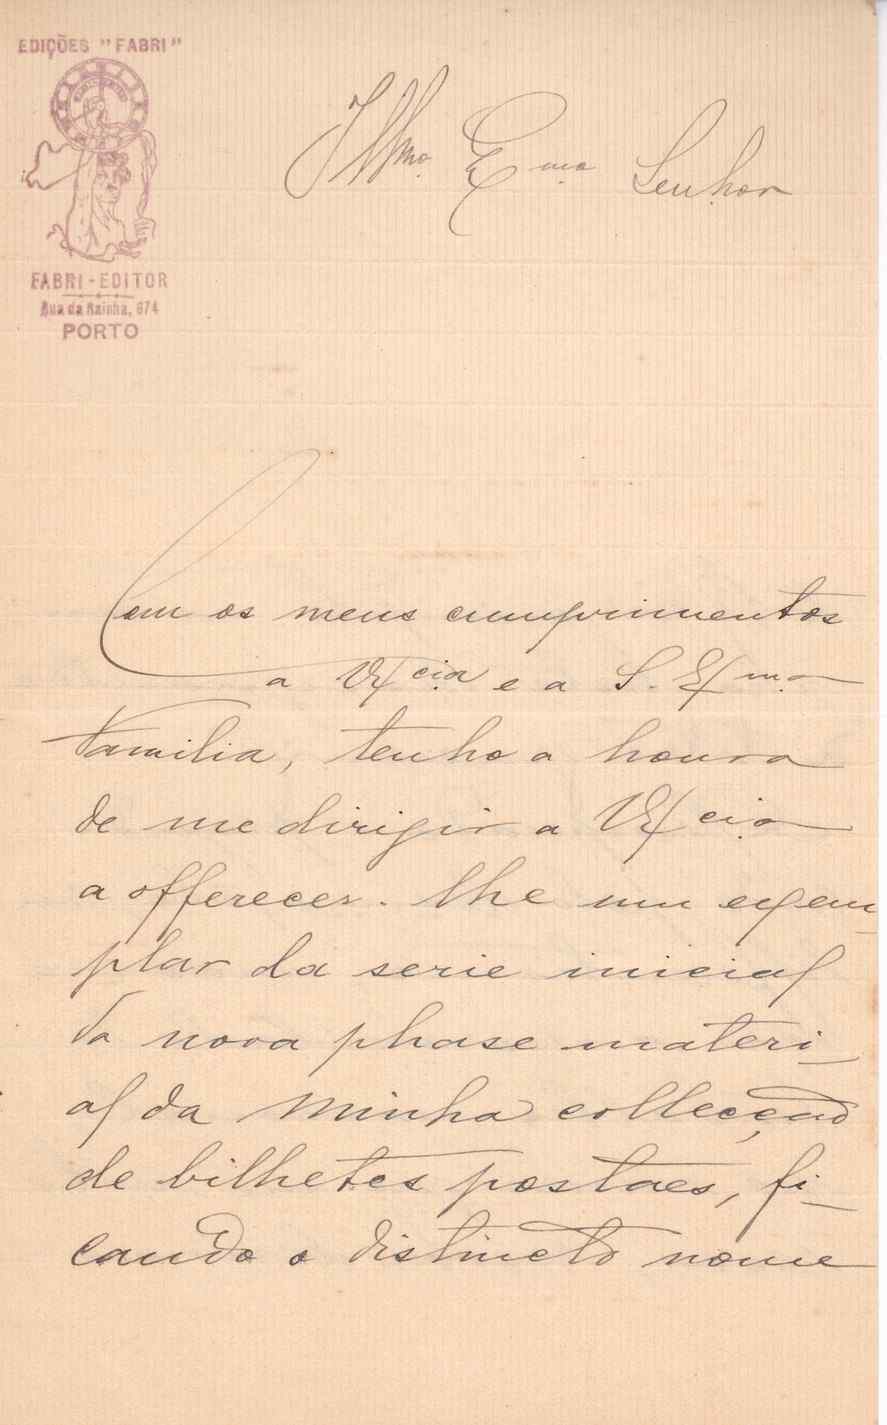 EDIÇÕES "FABRI"
FABRI-EDITOR
Rua da Rainha, 674
PORTO
Illmo. Exmo. Senhor
Com os meus cumprimentos
a VExcia. e a S. Exma.
Familia, tenho a honra
de me dirigir a VExcia.
a offerecer-lhe um exem-
plar da serie inicial
da nova phase materi-
al da minha collecção
de bilhetes postaes, fi-
cando o distincto nome